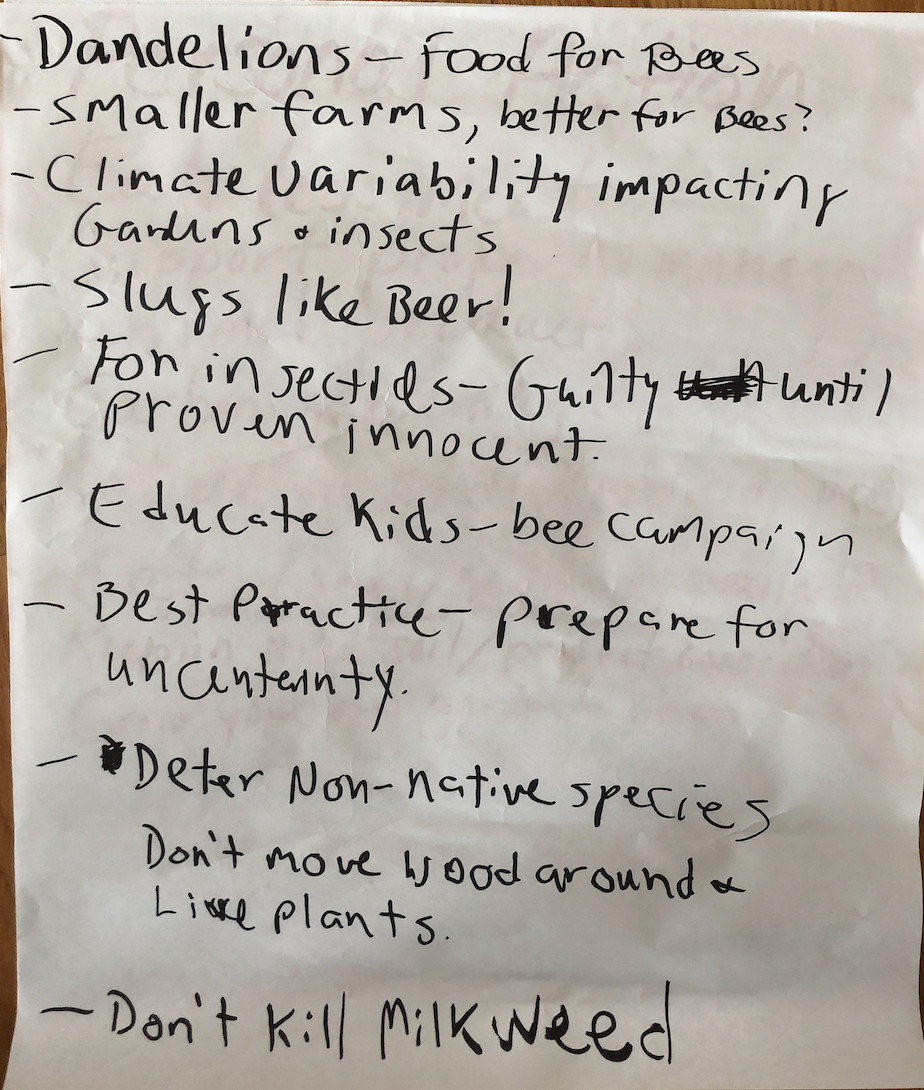 - Dandelions - Food for Bees
- Smaller farms, better for Bees?
- Climate variability impacting
Gardens & insects
- Slugs like Beer!
- For insecticides - Guilty until
Proven innocent.
- Educate Kids - bee campaign
- Best Practice - prepare for
uncertainty.
- Deter Non-native species
Don't move wood around &
Live plants.
- Don't Kill Milkweed